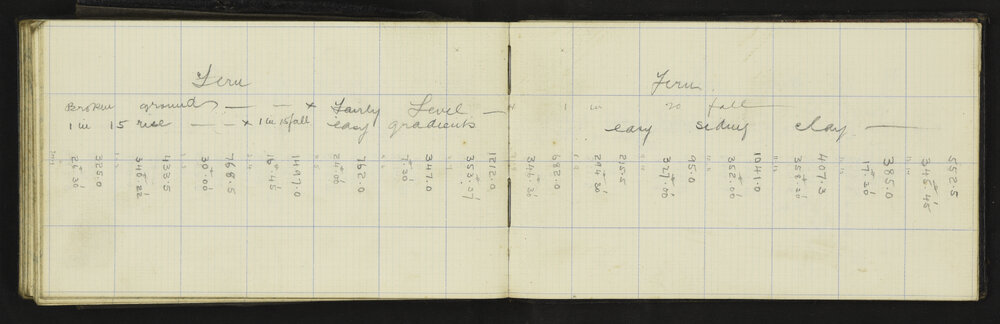 Fern
Broken ground — — x Fairly Level —
1 in 15 rise — — x 1 in 15 fall easy gradients
26.30
325.0
345.22
433.5
30.00
768.5
16.45
1497.0
24.00
762.0
7.30
347.0
353.37
1212.0
Fern
1 in 20 fall
easy siding clay —
346.30
682.0
294.30
215.5
327.00
95.0
352.00
1041.0
358.20
407.3
17.30
385.0
345.45
552.5